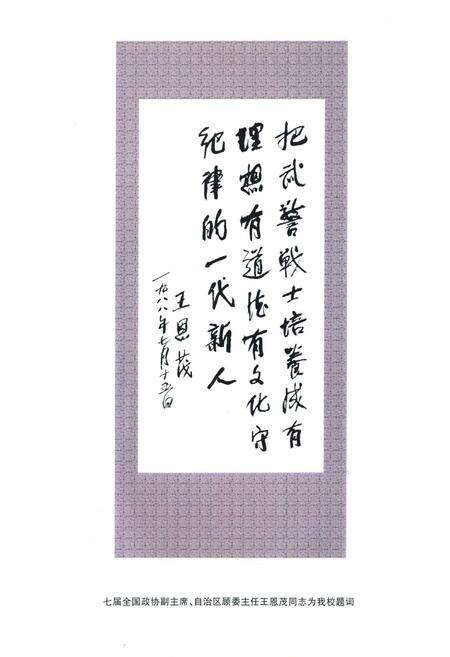 把武警战士培养成有
理想有道德有文化守
纪律的一代新人
王恩茂
一九八八年七月十五日
七届全国政协副主席、自治区顾委主任王恩茂同志为我校题词